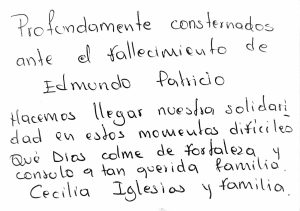 Profundamente consternados
ante el fallecimiento de
Edmundo Patricio
Hacemos llegar nuestra solidari
dad en estos momentos dificiles
Que Dios colme de fortaleza y
consulo a tan querida familia.
Cecilia Iglesias y familia.